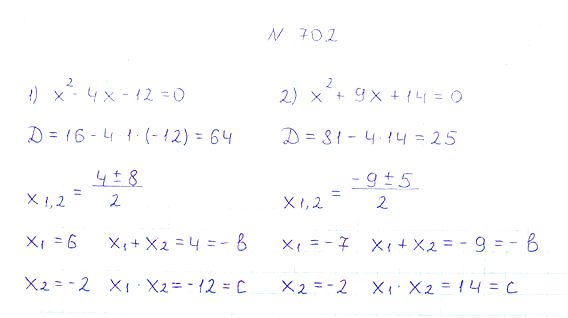 N 702
1) x² - 4x - 12 = 0
D = 16 - 4 · 1 · (-12) = 64
x₁,₂ = (4 ± 8) / 2
x₁ = 6 x₁ + x₂ = 4 = - b
x₂ = -2 x₁ · x₂ = -12 = c
2) x² + 9x + 14 = 0
D = 81 - 4 · 14 = 25
x₁,₂ = (-9 ± 5) / 2
x₁ = -7 x₁ + x₂ = - 9 = - b
x₂ = -2 x₁ · x₂ = 14 = c